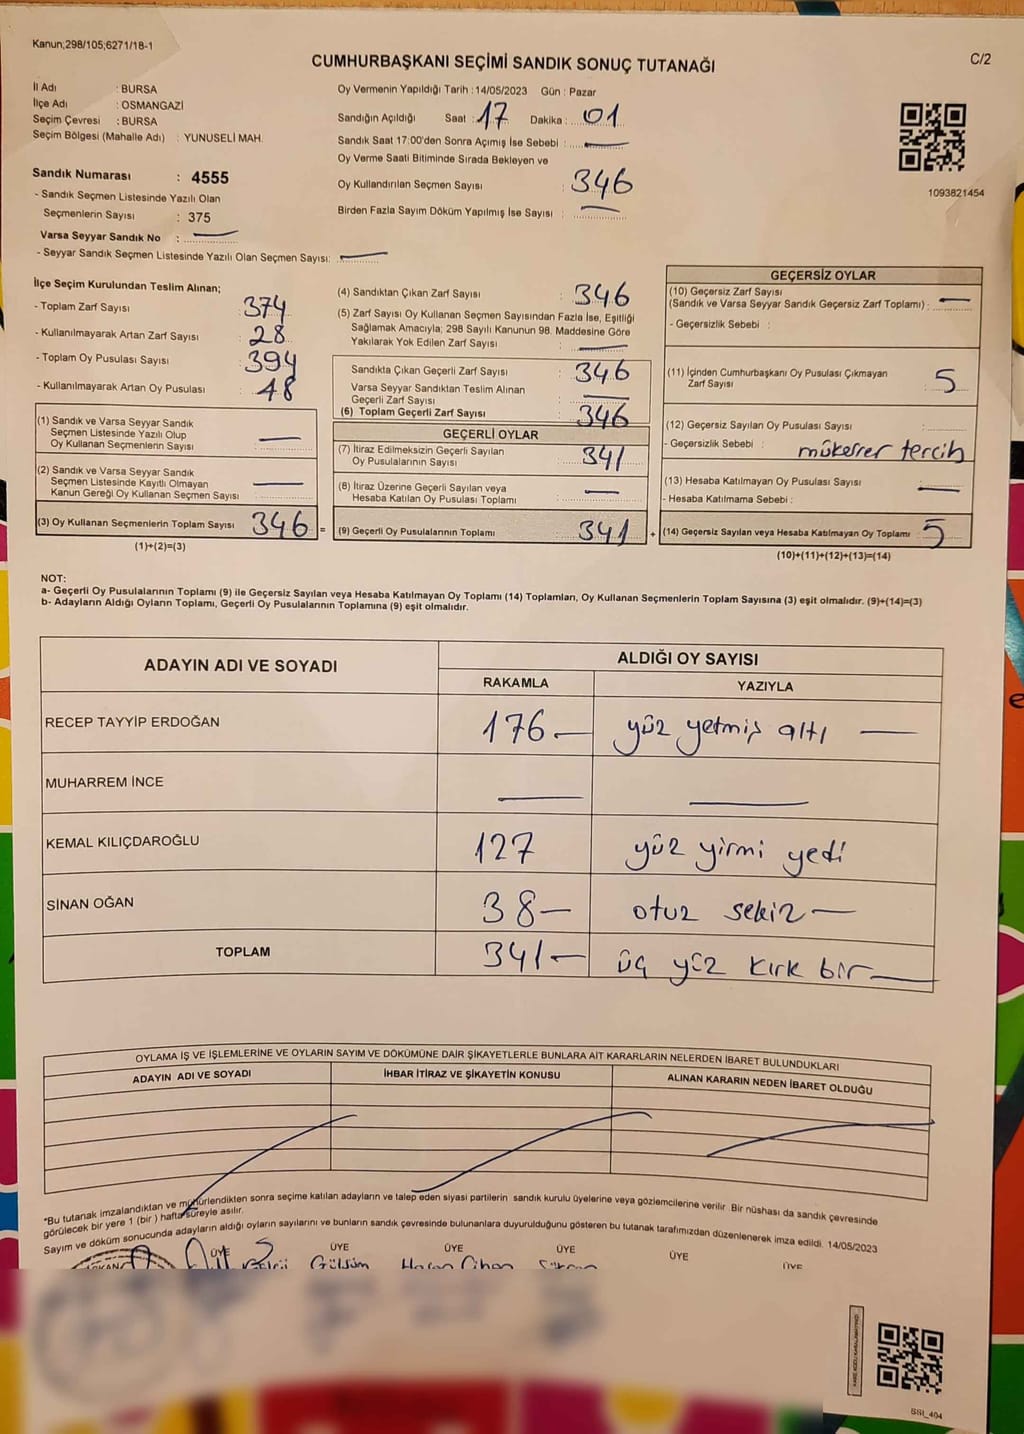 Kanun;298/105;6271/18-1
CUMHURBAŞKANI SEÇİMİ SANDIK SONUÇ TUTANAĞI
C/2
İl Adı : BURSA
İlçe Adı : OSMANGAZİ
Seçim Çevresi : BURSA
Seçim Bölgesi (Mahalle Adı) : YUNUSELİ MAH.
Sandık Numarası : 4555
- Sandık Seçmen Listesinde Yazılı Olan
Seçmenlerin Sayısı : 375
Varsa Seyyar Sandık No : —
- Seyyar Sandık Seçmen Listesinde Yazılı Olan Seçmen Sayısı: —
Oy Vermenin Yapıldığı Tarih : 14/05/2023 Gün : Pazar
Sandığın Açıldığı Saat : 17 Dakika : 01
Sandık Saat 17:00'den Sonra Açımış İse Sebebi : —
Oy Verme Saati Bitiminde Sırada Bekleyen ve
Oy Kullandırılan Seçmen Sayısı : 346
Birden Fazla Sayım Döküm Yapılmış İse Sayısı : —
1093821454
İlçe Seçim Kurulundan Teslim Alınan;
- Toplam Zarf Sayısı : 374
- Kullanılmayarak Artan Zarf Sayısı : 28
- Toplam Oy Pusulası Sayısı : 394
- Kullanılmayarak Artan Oy Pusulası : 48
(1) Sandık ve Varsa Seyyar Sandık
Seçmen Listesinde Yazılı Olup
Oy Kullanan Seçmenlerin Sayısı : —
(2) Sandık ve Varsa Seyyar Sandık
Seçmen Listesinde Kayıtlı Olmayan
Kanun Gereği Oy Kullanan Seçmen Sayısı : —
(3) Oy Kullanan Seçmenlerin Toplam Sayısı 346 =
(1)+(2)=(3)
(4) Sandıktan Çıkan Zarf Sayısı : 346
(5) Zarf Sayısı Oy Kullanan Seçmen Sayısından Fazla İse, Eşitliği
Sağlamak Amacıyla; 298 Sayılı Kanunun 98. Maddesine Göre
Yakılarak Yok Edilen Zarf Sayısı : —
Sandıkta Çıkan Geçerli Zarf Sayısı : 346
Varsa Seyyar Sandıktan Teslim Alınan
Geçerli Zarf Sayısı : —
(6) Toplam Geçerli Zarf Sayısı : 346
GEÇERLİ OYLAR
(7) İtiraz Edilmeksizin Geçerli Sayılan
Oy Pusulalarının Sayısı : 341
(8) İtiraz Üzerine Geçerli Sayılan veya
Hesaba Katılan Oy Pusulası Toplamı : —
(9) Geçerli Oy Pusulalarının Toplamı : 341 +
GEÇERSİZ OYLAR
(10) Geçersiz Zarf Sayısı
(Sandık ve Varsa Seyyar Sandık Geçersiz Zarf Toplamı) : —
- Geçersizlik Sebebi :
(11) İçinden Cumhurbaşkanı Oy Pusulası Çıkmayan
Zarf Sayısı : 5
(12) Geçersiz Sayılan Oy Pusulası Sayısı :
- Geçersizlik Sebebi : mükerrer tercih
(13) Hesaba Katılmayan Oy Pusulası Sayısı : —
- Hesaba Katılmama Sebebi :
(14) Geçersiz Sayılan veya Hesaba Katılmayan Oy Toplamı : 5
(10)+(11)+(12)+(13)=(14)
NOT:
a- Geçerli Oy Pusulalarının Toplamı (9) ile Geçersiz Sayılan veya Hesaba Katılmayan Oy Toplamı (14) Toplamları, Oy Kullanan Seçmenlerin Toplam Sayısına (3) eşit olmalıdır. (9)+(14)=(3)
b- Adayların Aldığı Oyların Toplamı, Geçerli Oy Pusulalarının Toplamına (9) eşit olmalıdır.
ADAYIN ADI VE SOYADI
ALDIĞI OY SAYISI
RAKAMLA YAZIYLA
RECEP TAYYİP ERDOĞAN 176 — yüz yetmiş altı —
MUHARREM İNCE — —
KEMAL KILIÇDAROĞLU 127 yüz yirmi yedi
SİNAN OĞAN 38 — otuz sekiz —
TOPLAM 341 — üç yüz kırk bir —
OYLAMA İŞ VE İŞLEMLERİNE VE OYLARIN SAYIM VE DÖKÜMÜNE DAİR ŞİKAYETLERLE BUNLARA AİT KARARLARIN NELERDEN İBARET BULUNDUKLARI
ADAYIN ADI VE SOYADI İHBAR İTİRAZ VE ŞİKAYETİN KONUSU ALINAN KARARIN NEDEN İBARET OLDUĞU
*Bu tutanak imzalandıktan ve mühürlendikten sonra seçime katılan adayların ve talep eden siyasi partilerin sandık kurulu üyelerine veya gözlemcilerine verilir. Bir nüshası da sandık çevresinde
görülecek bir yere 1 (bir) hafta süreyle asılır.
Sayım ve döküm sonucunda adayların aldığı oyların sayılarını ve bunların sandık çevresinde bulunanlara duyurulduğunu gösteren bu tutanak tarafımızdan düzenlenerek imza edildi. 14/05/2023
ÜYE ÜYE ÜYE ÜYE ÜYE ÜYE
Gülsüm Hasan Cihan